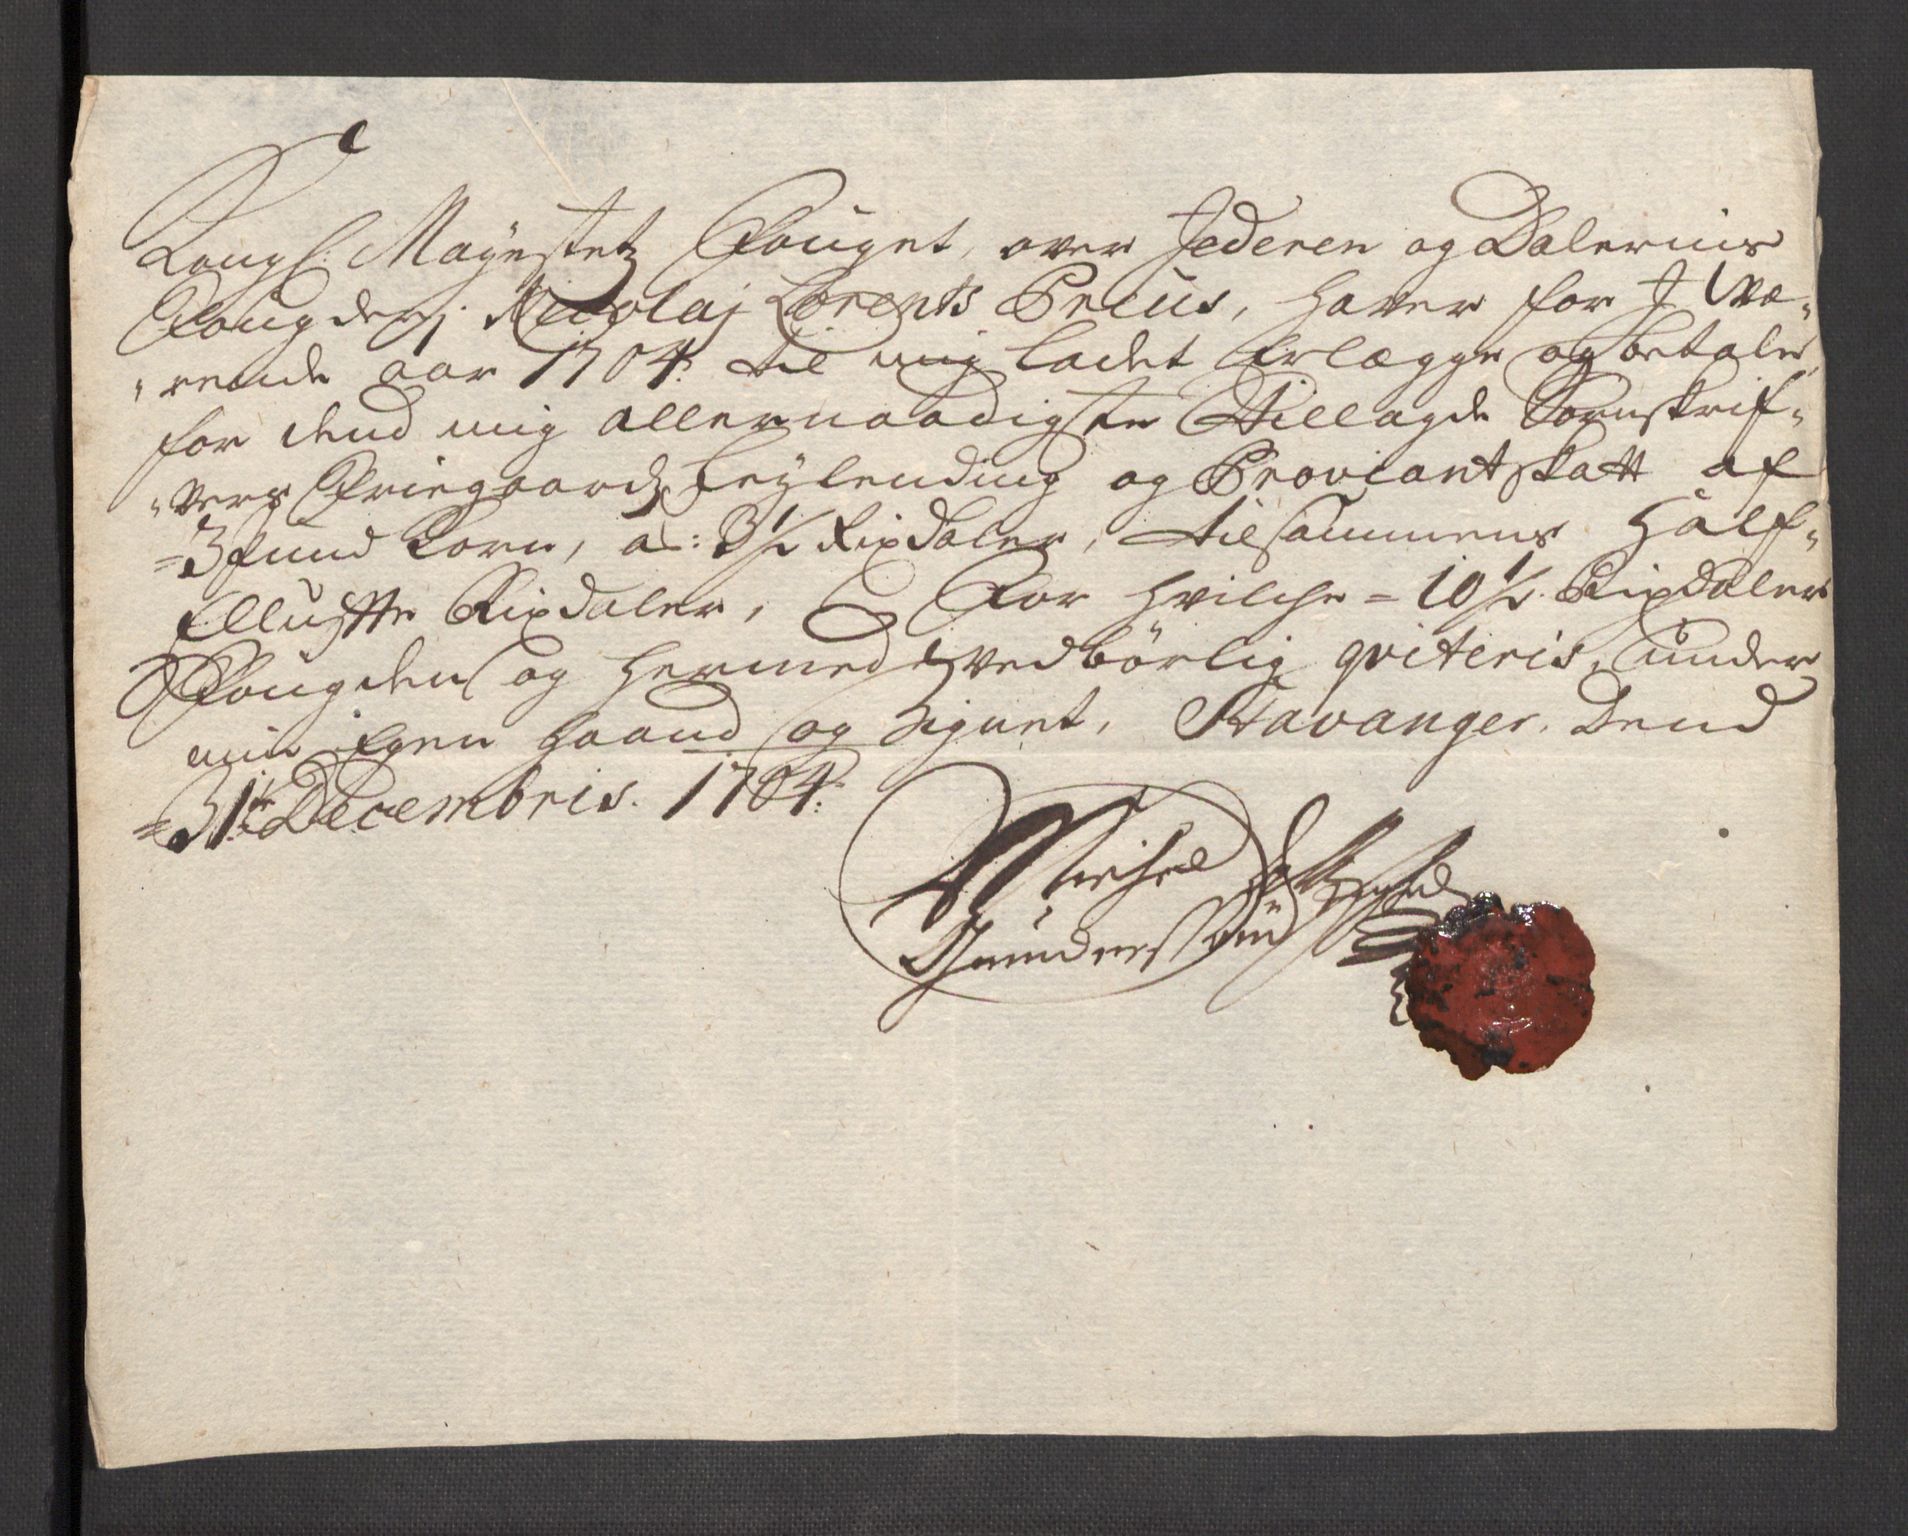 Kongl: Mayestetz Fouget, over Jederen og Dalernis
Fougderj. Nicolaj Lorents Preus, haver for J Væ-
-rende aar 1704. til mig ladet Erlægge og betale,
for dend mig allernaadigste tillagde Sorenskrif-
-vers Friegaardz Leylending og Proviantskatt af
=3 pund Korn, a: 3½ Rixdaler, tilsammens Half-
Ellufte Rixdaler, For hvilche = 10½. Rixdaler
Fougden og hermed vedbörlig qviteris, under
min Egen haand og Signet, Stavanger. Dend
=31te Decembris. 1704.
Michel
Gunderssøn